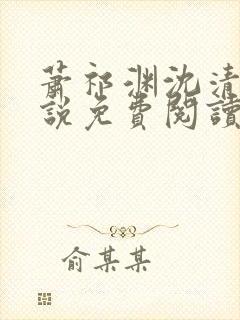 蕭祁淵沈清
說免費閱讀
俞某某